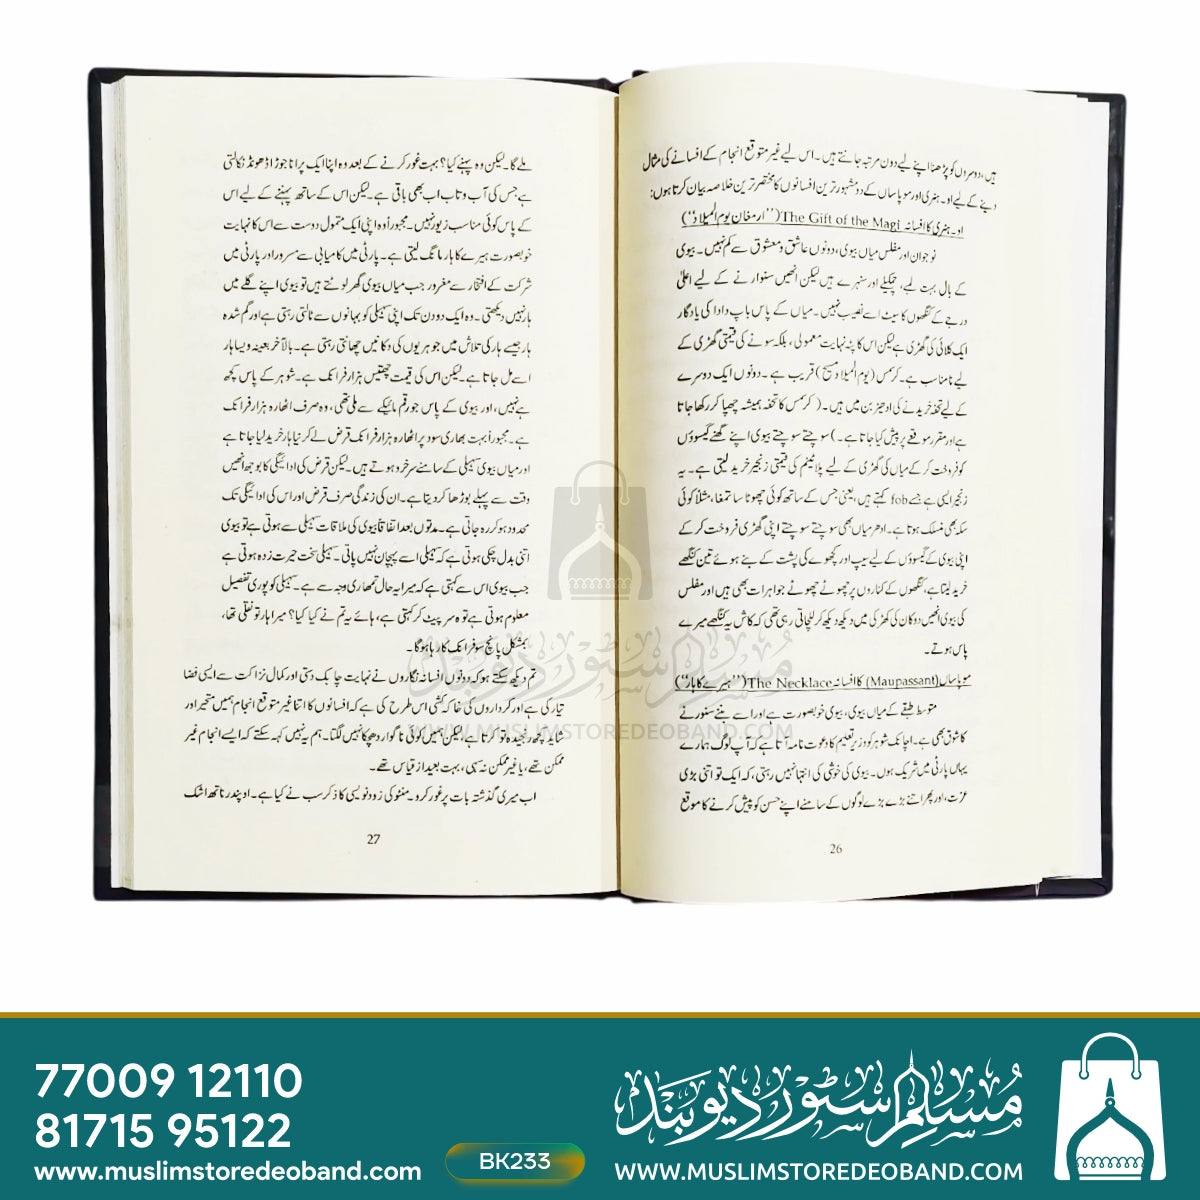 ہیں، دوسروں کو پڑھنا اپنے لیے دون مرتبہ جانتے ہیں۔ اس لیے غیر متوقع انجام کے افسانے کی مثال
دینے کے لیے او۔ ہنری اور موپاساں کے دو مشہور ترین افسانوں کا مختصر ترین خلاصہ بیان کرتا ہوں:
او۔ ہنری کا افسانہ The Gift of the Magi (’’ارمغان یوم المیلاد‘‘)
نوجوان اور مفلس میاں بیوی، دونوں عاشق و معشوق سے کم نہیں۔ بیوی
کے بال بہت لمبے، چمکیلے اور سنہرے ہیں لیکن انھیں سنوارنے کے لیے اعلیٰ
درجے کے کنگھوں کا سیٹ اسے نصیب نہیں۔ میاں کے پاس باپ دادا کی یادگار
ایک کلائی کی گھڑی ہے لیکن اس کا پٹہ نہایت معمولی، بلکہ سونے کی قیمتی گھڑی کے
لیے نامناسب ہے۔ کرسمس (یوم المیلاد مسیح) قریب ہے۔ دونوں ایک دوسرے
کے لیے تحفہ خریدنے کی ادھیڑ بن میں ہیں۔ (کرسمس کا تحفہ ہمیشہ چھپا کر رکھا جاتا
ہے اور مقرر موقعے پر پیش کیا جاتا ہے۔) سوچتے سوچتے بیوی اپنے گھنے گیسوؤں
کو فروخت کر کے میاں کی گھڑی کے لیے پلاٹینم کی قیمتی زنجیر خرید لیتی ہے۔ یہ
زنجیر ایسی ہے جسے fob کہتے ہیں، یعنی جس کے ساتھ کوئی چھوٹا سا تمغا، مثلاً کوئی
سکہ بھی منسلک ہوتا ہے۔ ادھر میاں بھی سوچتے سوچتے اپنی گھڑی فروخت کر کے
اپنی بیوی کے گیسوؤں کے لیے سیپ اور کچھوے کی پشت کے بنے ہوئے تین کنگھے
خرید لیتا ہے، کنگھوں کے کناروں پر چھوٹے چھوٹے جواہرات بھی ہیں اور مفلس
کی بیوی انھیں دوکان کی کھڑکی میں دیکھ دیکھ کر للچاتی رہی تھی کہ کاش یہ کنگھے میرے
پاس ہوتے۔
موپاساں (Maupassant) کا افسانہ The Necklace (’’ہیرے کا ہار‘‘)
متوسط طبقے کے میاں بیوی، بیوی خوبصورت ہے اور اسے بننے سنورنے
کا شوق بھی ہے۔ اچانک شوہر کو وزیر تعلیم کا دعوت نامہ آتا ہے کہ آپ لوگ ہمارے
یہاں پارٹی میں شریک ہوں۔ بیوی کی خوشی کی انتہا نہیں رہتی، کہ ایک تو اتنی بڑی
عزت، اور پھر اتنے بڑے بڑے لوگوں کے سامنے اپنے حسن کو پیش کرنے کا موقع
26
ملے گا۔ لیکن وہ پہنے کیا؟ بہت غور کرنے کے بعد وہ اپنا ایک پرانا جوڑا ڈھونڈ نکالتی
ہے جس کی آب و تاب اب بھی باقی ہے۔ لیکن اس کے ساتھ پہننے کے لیے اس
کے پاس کوئی مناسب زیور نہیں۔ مجبوراً وہ اپنی ایک متمول دوست سے اس کا نہایت
خوبصورت ہیرے کا ہار مانگ لیتی ہے۔ پارٹی میں کامیابی سے مسرور اور پارٹی میں
شرکت کے افتخار سے مغرور جب میاں بیوی گھر لوٹتے ہیں تو بیوی اپنے گلے میں
ہار نہیں دیکھتی۔ وہ ایک دو دن تک اپنی سہیلی کو بہانوں سے ٹالتی رہتی ہے اور گم شدہ
ہار جیسے ہار کی تلاش میں جوہریوں کی دکانیں چھانتی رہتی ہے۔ بالآخر بعینہ ویسا ہار
اسے مل جاتا ہے۔ لیکن اس کی قیمت چھتیس ہزار فرانک ہے۔ شوہر کے پاس کچھ
ہے نہیں، اور بیوی کے پاس جو رقم مائیکے سے ملی تھی، وہ صرف اٹھارہ ہزار فرانک
ہے۔ مجبوراً بہت بھاری سود پر اٹھارہ ہزار فرانک قرض لے کر نیا ہار خرید لیا جاتا ہے
اور میاں بیوی سہیلی کے سامنے سرخرو ہوتے ہیں۔ لیکن قرض کی ادائیگی کا بوجھ انھیں
وقت سے پہلے بوڑھا کر دیتا ہے۔ ان کی زندگی صرف قرض اور اس کی ادائیگی تک
محدود ہو کر رہ جاتی ہے۔ مدتوں بعد اتفاقاً بیوی کی ملاقات سہیلی سے ہوتی ہے تو بیوی
اتنی بدل چکی ہوتی ہے کہ سہیلی اسے پہچان نہیں پاتی۔ سہیلی سخت حیرت زدہ ہوتی ہے
جب بیوی اس سے کہتی ہے کہ میرا یہ حال تمھاری وجہ سے ہے۔ سہیلی کو پوری تفصیل
معلوم ہوتی ہے تو وہ سر پیٹ کر کہتی ہے، ہائے یہ تم نے کیا کیا؟ میرا ہار تو نقلی تھا،
بمشکل پانچ سو فرانک کا رہا ہوگا۔
تم دیکھ سکتے ہو کہ دونوں افسانہ نگاروں نے نہایت چابک دستی اور کمال نزاکت سے ایسی فضا
تیار کی ہے اور کرداروں کی خاکہ کشی اس طرح کی ہے کہ افسانوں کا اتنا غیر متوقع انجام ہمیں متحیر اور
شاید کچھ رنجیدہ تو کرتا ہے، لیکن ہمیں کوئی ناگوار دھچکا نہیں لگتا۔ ہم یہ نہیں کہہ سکتے کہ ایسے انجام غیر
ممکن تھے، یا غیر ممکن نہ سہی، بہت بعید از قیاس تھے۔
اب میری گذشتہ بات پر غور کرو۔ منٹو کی زود نویسی کا ذکر سب نے کیا ہے۔ اوپندر ناتھ اشک
27
مسلم سٹور دیوبند
WWW.MUSLIMSTOREDEOBAND.COM
77009 12110
81715 95122
www.muslimstoredeoband.com
BK233
مسلم سٹور دیوبند
WWW.MUSLIMSTOREDEOBAND.COM